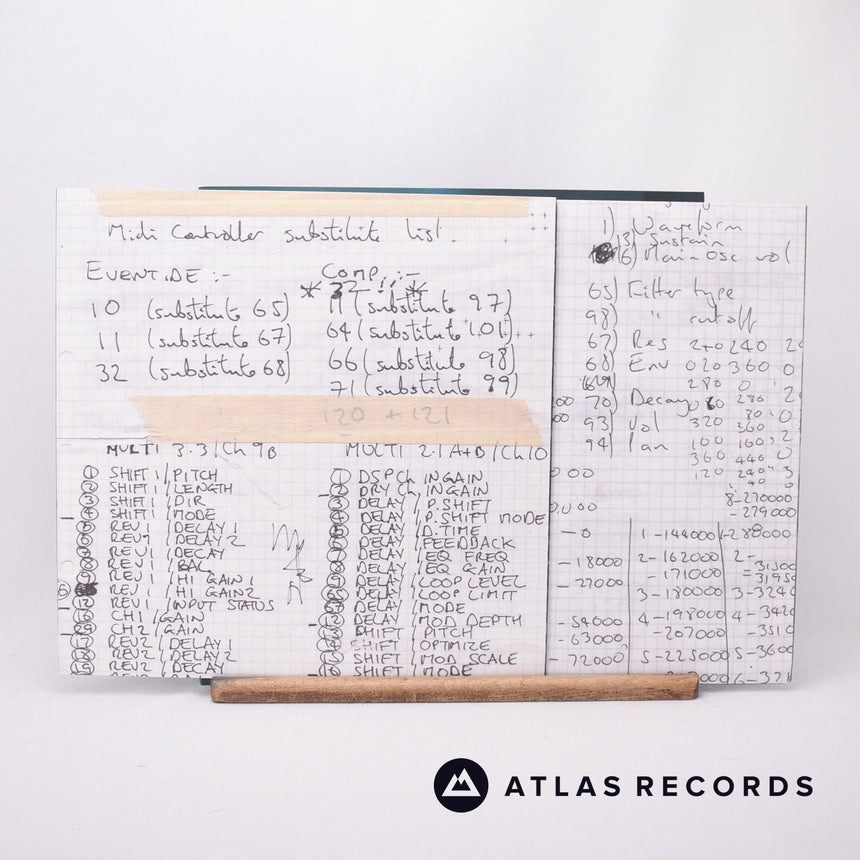 Midi Controller substitute list.
EVENTIDE :-
10 (substitute 65)
11 (substitute 67)
32 (substitute 68)
COMP :-
* 32 !! *
11 (substitute 97)
64 (substitute 101)
66 (substitute 98)
71 (substitute 99)
120 + 121
MULTI 3.3/Ch 9B
① SHIFT 1/PITCH
② SHIFT 1/LENGTH
③ SHIFT 1/DIR
④ SHIFT 1/MODE
REV 1/DELAY 1
REV 1/DELAY 2
REV 1/DECAY
REV 1/BAL
REV 1/HI GAIN 1
REV 1/HI GAIN 2
REV 1/INPUT STATUS
CH 1/GAIN
CH 2/GAIN
REV 2/DELAY 1
REV 2/DELAY 2
REV 2/DECAY
MULTI 2.1 A+B/Ch 10
① DSP Ch INGAIN
② DRY Ch, INGAIN
③ DELAY/P.SHIFT
DELAY/P.SHIFT MODE
DELAY/D.TIME
DELAY/FEEDBACK
DELAY/EQ FREQ
DELAY/EQ GAIN
DELAY/LOOP LEVEL
DELAY/LOOP LIMIT
DELAY/MODE
DELAY/MOD DEPTH
SHIFT/PITCH
SHIFT/OPTIMIZE
SHIFT/MOD SCALE
SHIFT/MODE
1) Waveform
13) Sustain
16) Main Osc vol
65) Filter type
98) " cutoff
67) Res 240 240
68) Env 020 360 0
(69) 280 0
70) Decay 286 2
93) Vol 320 360
94) Pan 100 160
360 440 0
120 240
8-270000
-279000
-0
-18000
-27000
-54000
-63000
-72000
1-144000
2-162000
-171000
3-180000
4-198000
-207000
5-225000
-288000
2-
-31500
-3195
3-3240
4-342
-3510
5-3600
6-378
ATLAS RECORDS